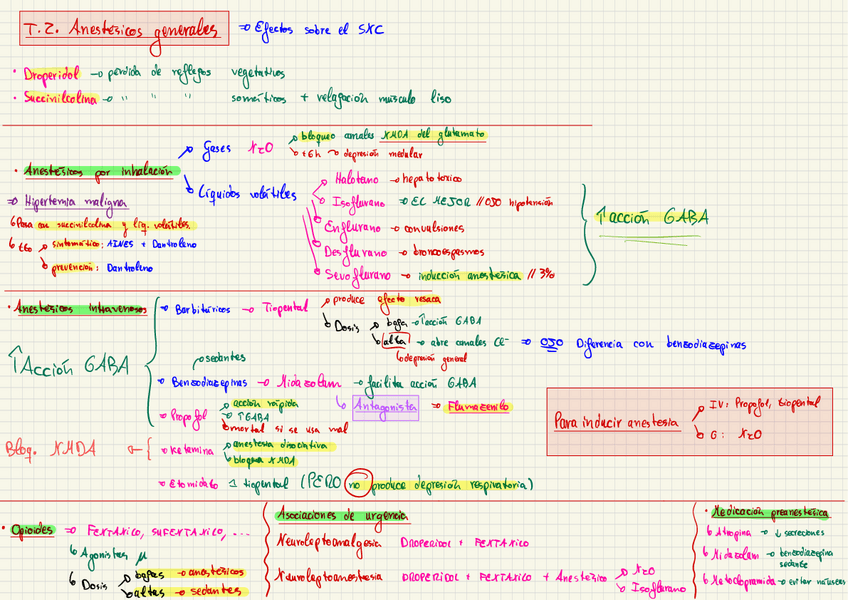 T.2. Anestésicos generales ⇒ Efectos sobre el SNC
· Droperidol → pérdida de reflejos vegetativos
· Succinilcolina → " " " somáticos + relajación músculo liso
· Anestésicos por inhalación
Gases N2O
bloqueo canales NMDA del glutamato
+6h → depresión medular
Líquidos volátiles
Halotano → hepatotóxico
Isoflurano → EL MEJOR // OJO hipotensión
Enflurano → convulsiones
Desflurano → broncoespasmos
Sevoflurano → inducción anestésica // 3%
↑acción GABA
⇒ Hipertermia maligna
Pasa con succinilcolina y líq. volátiles.
tto
sintomático: AINES + Dantroleno
prevención: Dantroleno
· Anestésicos intravenosos
↑Acción GABA
Barbitúricos → Tiopental
produce efecto resaca
Dosis
baja → ↑acción GABA
alta → abre canales Cl- ⇒ OJO Diferencia con benzodiazepinas
depresión general
sedantes
Benzodiazepinas → Midazolam → facilita acción GABA
Antagonista ⇒ Flumazenilo
Propofol
acción rápida
↑GABA
mortal si se usa mal
Bloq. NMDA
Ketamina
anestesia disociativa
bloquea NMDA
Etomidato tiopental (PERO no produce depresión respiratoria)
Para inducir anestesia
IV: Propofol, tiopental
G: N2O
· Opioides ⇒ FENTANILO, SUFENTANILO, ...
Agonistas μ
Dosis
bajas → anestésicos
altas → sedantes
Asociaciones de urgencia
Neuroleptoanalgesia DROPERIDOL + FENTANILO
Neuroleptoanestesia DROPERIDOL + FENTANILO + Anestésico
N2O
Isoflurano
· Medicación preanestésica
Atropina → ↓ secreciones
Midazolam → benzodiazepina sedante
Metoclopramida → evitar náuseas